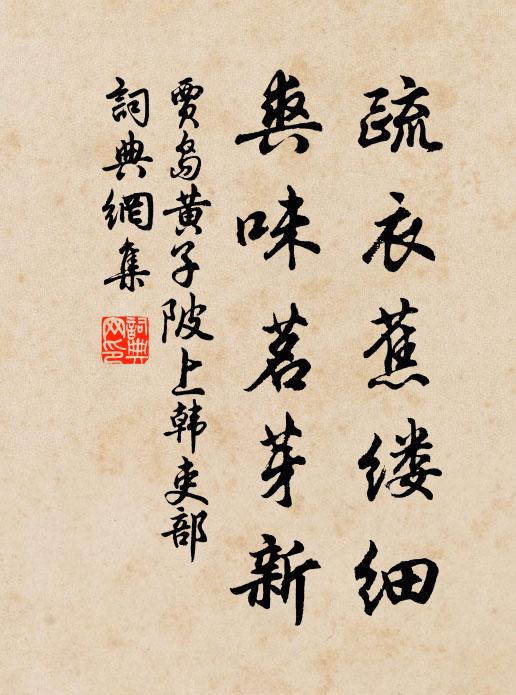 疏衣蕉缕细
爽味茗芽新
贾岛黄子陂上韩吏部
詞典網集
詞典网印